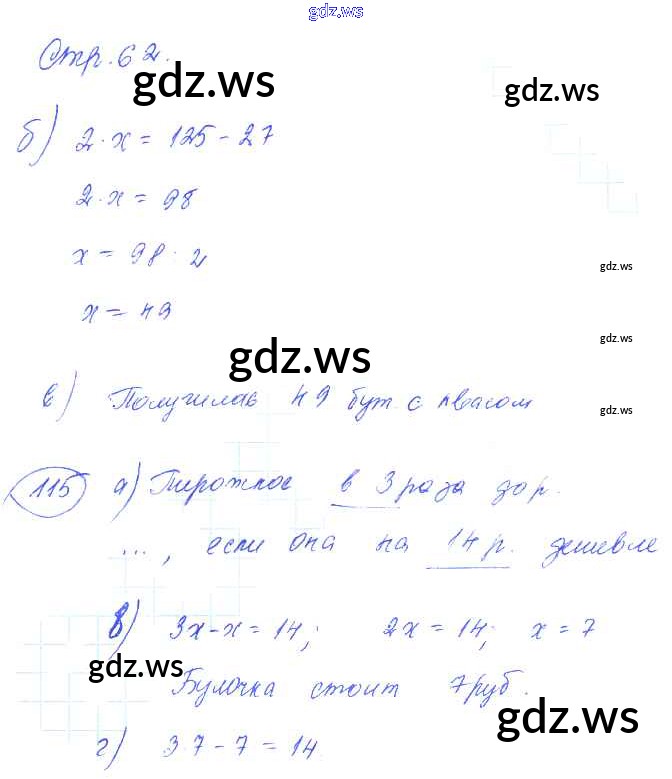 gdz.ws
Стр. 62.
gdz.ws
gdz.ws
б) 2·x = 125 - 27
2·x = 98
x = 98 : 2
gdz.ws
x = 49
gdz.ws
gdz.ws
в) Получилось 49 бут. с квасом
gdz.ws
115 а) Пирожное в 3 раза дор.
..., если она на 14 р. дешевле
в) 3x - x = 14; 2x = 14; x = 7
gdz.ws
Булочка стоит 7 руб.
gdz.ws
г) 3·7 - 7 = 14